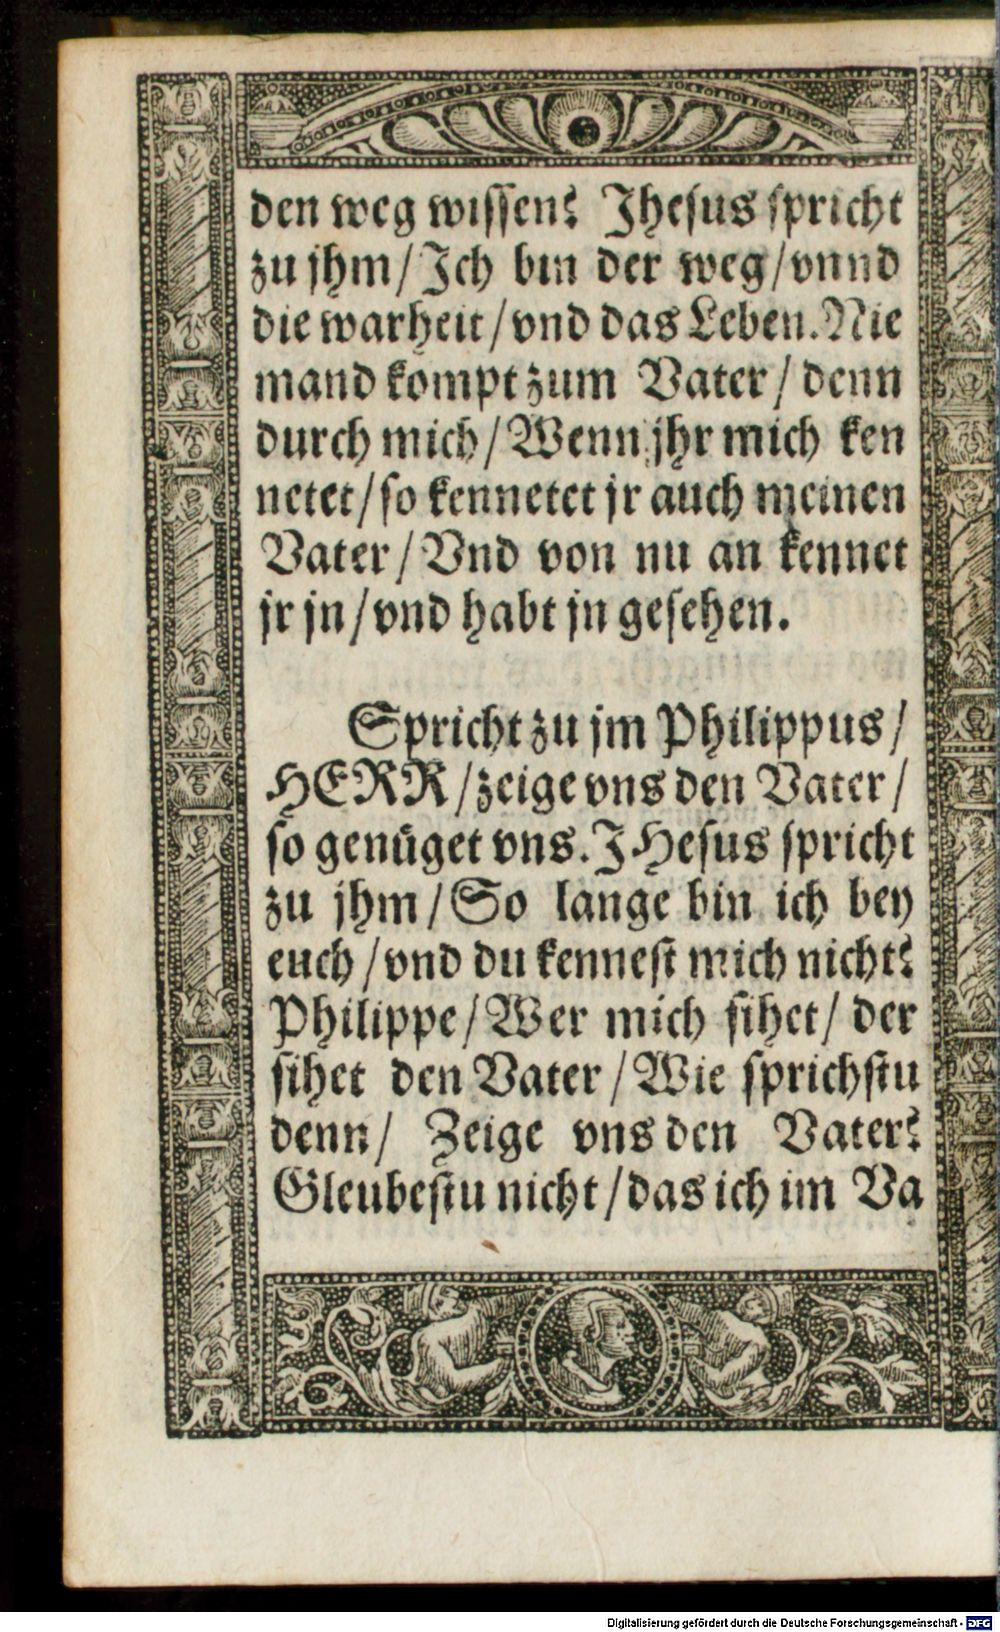 den weg wissen? Jhesus spricht
zu jhm/Ich bin der weg/vnnd
die warheit/vnd das Leben.Nie
mand kompt zum Vater/denn
durch mich/Wenn jhr mich ken
netet/so kennetet jr auch meinen
Vater/Vnd von nu an kennet
jr jn/vnd habt jn gesehen.
Spricht zu jm Philippus/
HERR/zeige vns den Vater/
so genüget vns.JHesus spricht
zu jhm/So lange bin ich bey
euch/vnd du kennest mich nicht?
Philippe/Wer mich sihet/der
sihet den Vater/Wie sprichstu
denn/Zeige vns den Vater?
Gleubestu nicht/das ich im Va
Digitalisierung gefördert durch die Deutsche Forschungsgemeinschaft - DFG